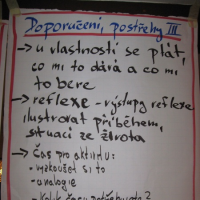 Doporučení, postřehy III
→ u vlastností se ptát,
co mi to dává a co mi
to bere
→ reflexe - výstupy reflexe
ilustrovat příběhem,
situací ze života
→ Čas pro aktivitu:
- vyzkoušet si to
- analogie
- Kolik času potřebuje?